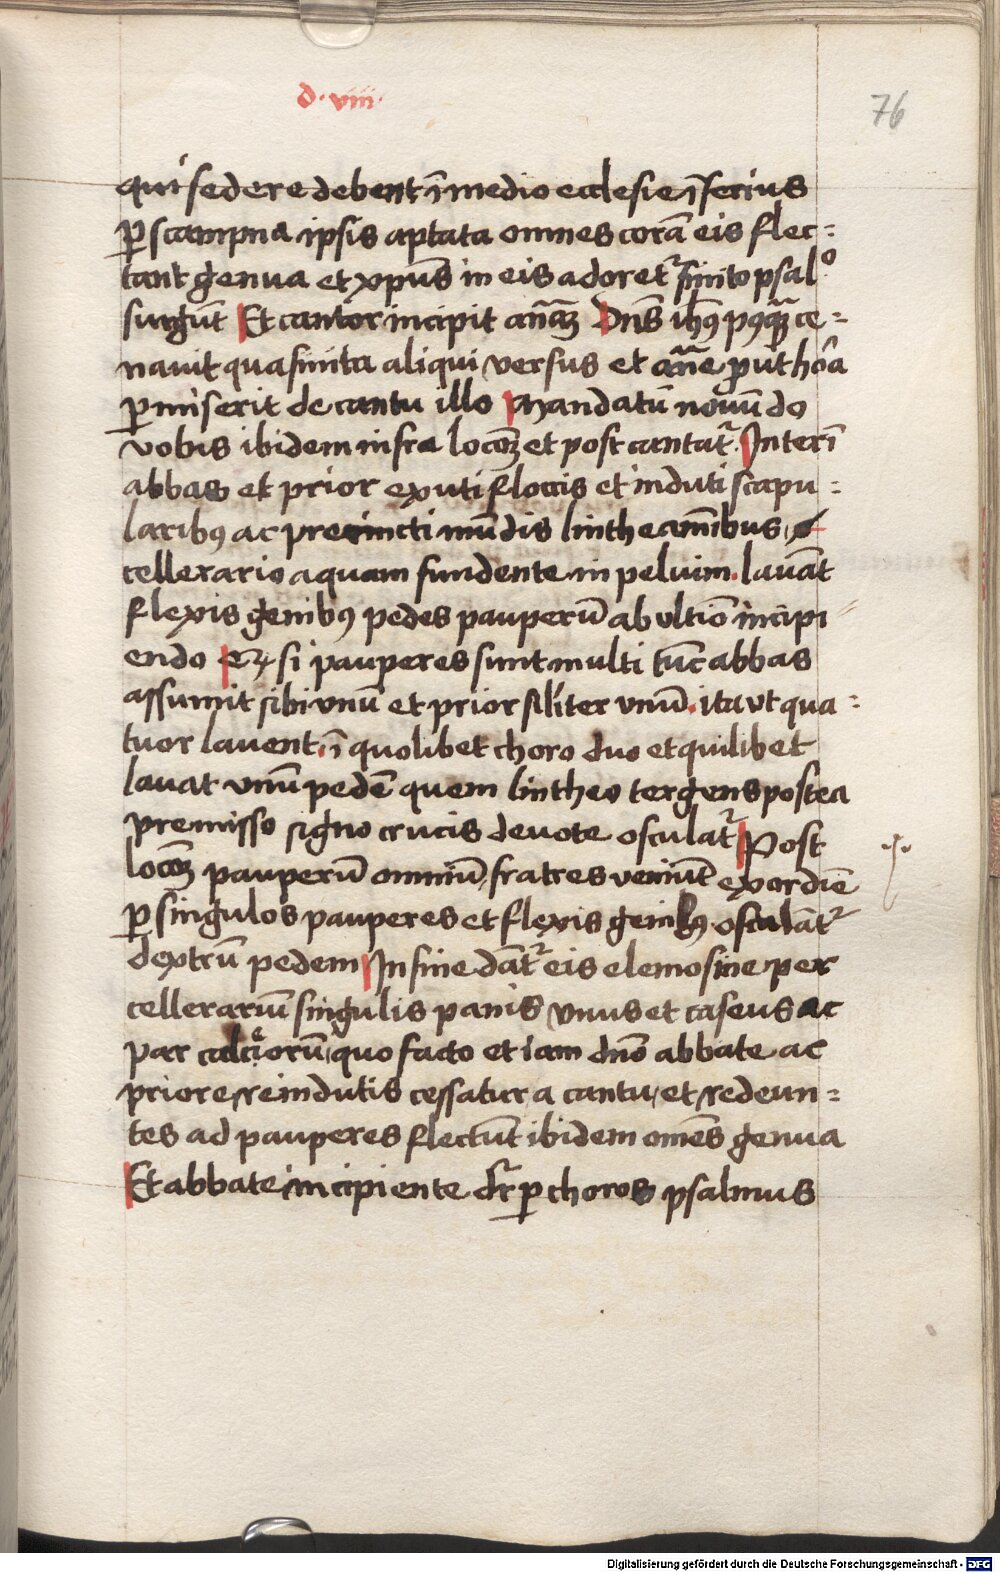 d · viii ·
76
qui sedere debent ī medio ecclesie īferius
ꝑ scampna ipsis aptata omnes corā eis flec=
tant genua et xpūs in eis adoretᷣ finito psalº
surgūt Et cantor incipit anāꝫ Dn̄s ih̄ꝯ pꝯqꝫ ce=
nauit qua finita aliqui versus et an̄e prout hōa
ꝑmiserit de cantu illo Mandatū nouū do
vobis ibidem infra locoꝫ et post cantatᷣ. Interī
abbas et prior exuti floccis et induti scapu=
laribꝯ ac precincti mūdis lintheaminībus
cellerario aquam fundente in peluim. lauāt
flexis genibꝯ pedes pauperū ab vltīo incipi
endo Et si pauperes sunt multi tūc abbas
assumit sibi vnū et prior sīliter vnū. ita vt qua=
tuor lauent. ī quolibet choro duo et quilibet
lauat vnū pedē quem lintheo tergens postea
premisso signo crucis deuote osculatᷣ Post
locoꝫ pauperū omniū fratres veniūt ex ordīe
ꝑ singulos pauperes et flexis genibꝯ osculātᷣ
dextrū pedem In fine dātᷣ eis elemosine per
cellerariū singulis panis vnus et caseus ac
par calcͤorū, quo facto et iam dn̄o abbate ac
priore reindutis cessatur a cantu, et redeun=
tes ad pauperes flectūt ibidem omēs genua
Et abbate incipiente dr̄ ꝑ choros psalmus
Digitalisierung gefördert durch die Deutsche Forschungsgemeinschaft - DFG